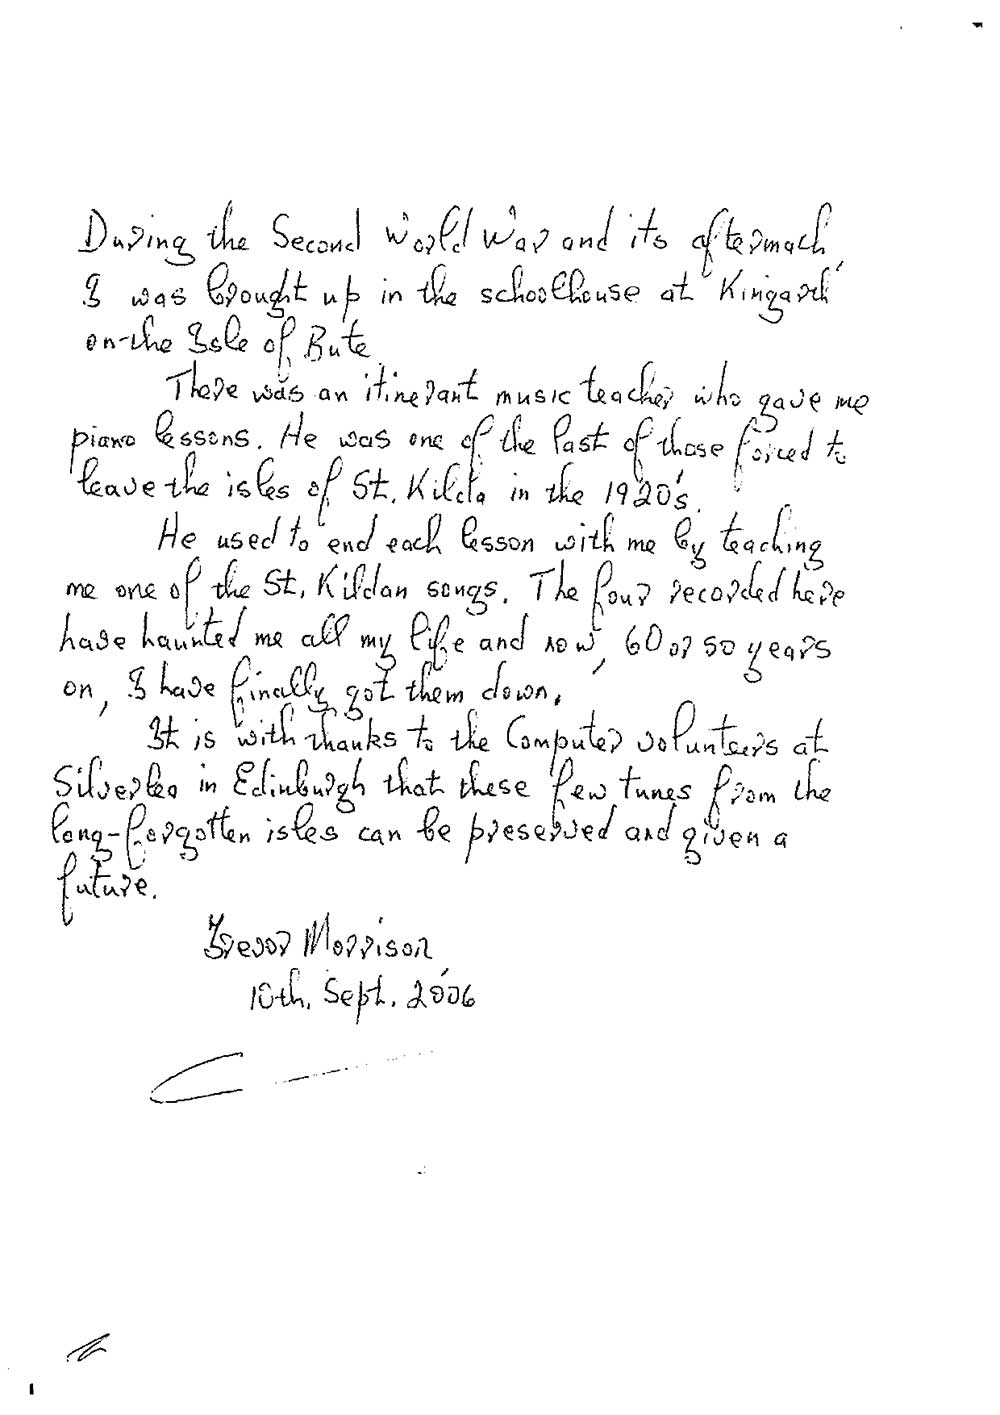 During the Second World War and its aftermach,
I was brought up in the schoolhouse at Kingarth
on-the Isle of Bute
There was an itinerant music teacher who gave me
piano lessons. He was one of the last of those forced to
leave the isles of St. Kilda in the 1920's.
He used to end each lesson with me by teaching
me one of the St. Kildan songs. The four recorded here
have haunted me all my life and now, 60 or so years
on, I have finally got them down.
It is with thanks to the Computer volunteers at
Silverlea in Edinburgh that these few tunes from the
long-forgotten isles can be preserved and given a
future.
Trevor Morrison
10th. Sept. 2006